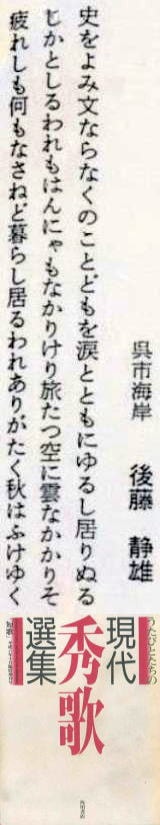 呉市海岸　後藤　静雄
史をよみ文ならなくのことどもを涙とともにゆるし居りぬる
じかとしるわれもはんにゃもなかりけり旅たつ空に雲なかかりそ
疲れしも何もなさねど暮らし居るわれありがたく秋はふけゆく
うたびとたちの
現代
秀歌
選集